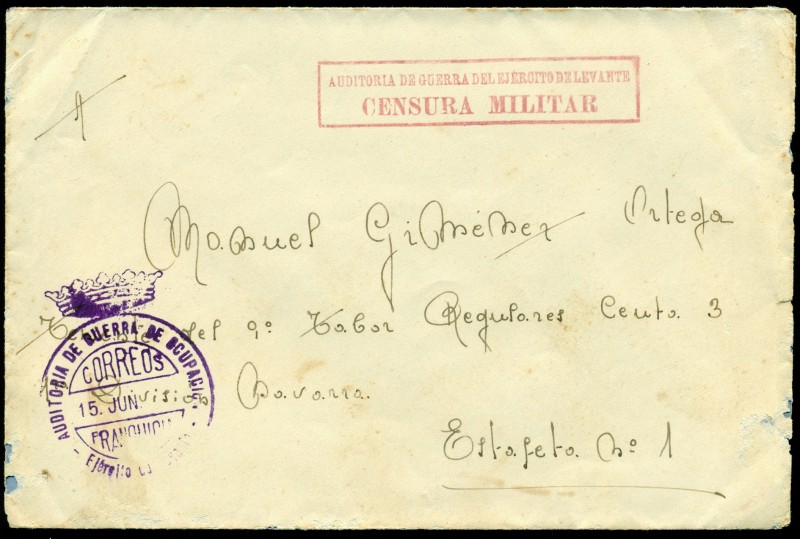 AUDITORIA DE GUERRA DEL EJÉRCITO DE LEVANTE
CENSURA MILITAR
Manuel Giménez Ortega
del 9º Tabor Regulares Ceuta 3
Division Navarra.
Estafeta Nº 1
AUDITORIA DE GUERRA DE OCUPACION
CORREOS
15. JUN.
FRANQUICIA
Ejército